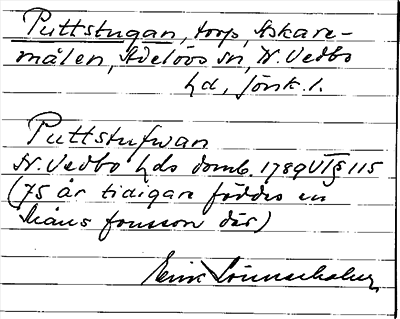 Puttstugan, torp, Askare-
målen, Adelövs sn, N. Vedbo
hd, Jönk. l.
Puttstufwan
N. Vedbo hds domb. 1789 VT § 115
(75 år tidigare föddes en
Måns Jonsson där)